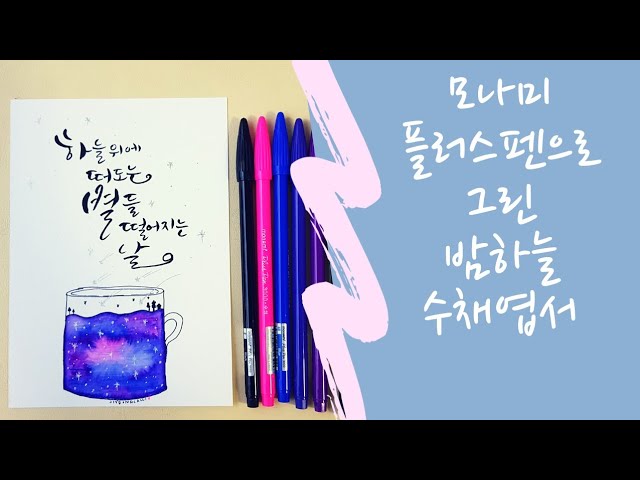 하늘위에
떠도는
별들
떨어지는
날
모나미
플러스펜으로
그린
밤하늘
수채엽서